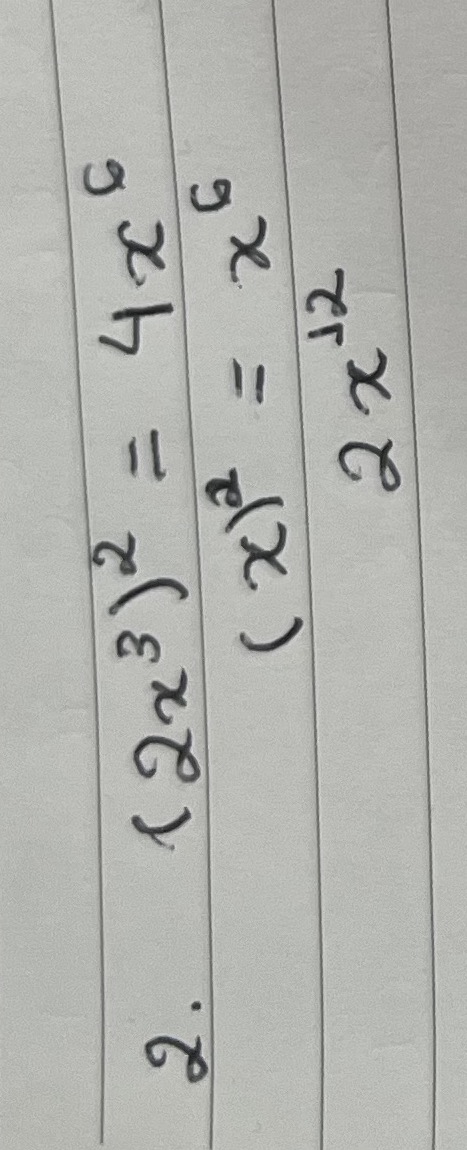 2. (2x³)² = 4x⁶
(x)² = x⁶
2x¹²